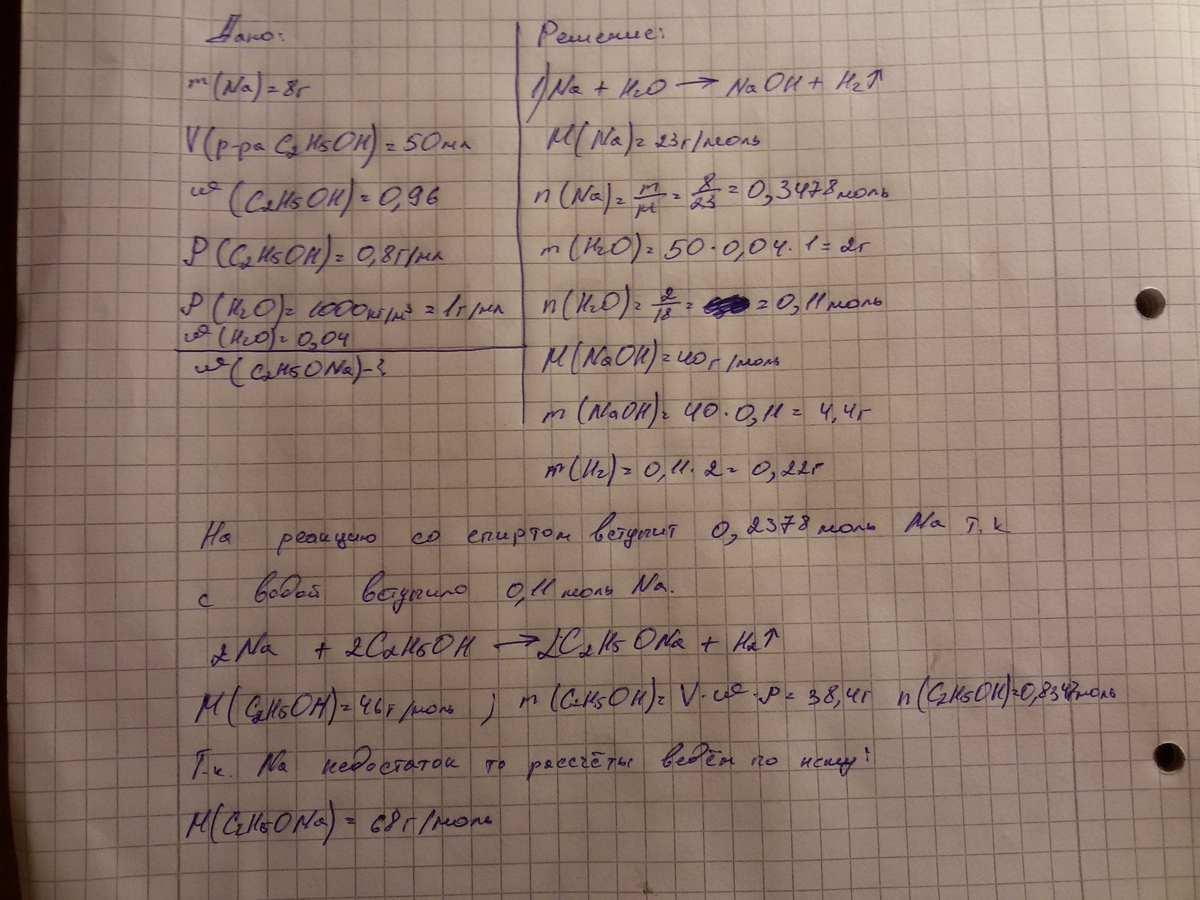 Дано:
m(Na)=8г
V(р-ра C2H5OH)=50мл
ω(C2H5OH)=0,96
ρ(C2H5OH)=0,8г/мл
ρ(H2O)=1000кг/м³=1г/мл
ω(H2O)=0,04
ω(C2H5ONa)-?
Решение:
1)Na + H2O → NaOH + H2↑
M(Na)=23г/моль
n(Na)=m/M=8/23=0,3478моль
m(H2O)=50·0,04·1=2г
n(H2O)=2/18= =0,11моль
M(NaOH)=40г/моль
m(NaOH)=40·0,11=4,4г
m(H2)=0,11·2=0,22г
На реакцию со спиртом вступит 0,2378моль Na т.к
с водой вступило 0,11моль Na.
2Na + 2C2H5OH → 2C2H5ONa + H2↑
M(C2H5OH)=46г/моль ; m(C2H5OH)=V·ω·ρ=38,4г n(C2H5OH)=0,8347моль
Т.к. Na недостаток то рассчёты ведём по нему:
M(C2H5ONa)=68г/моль